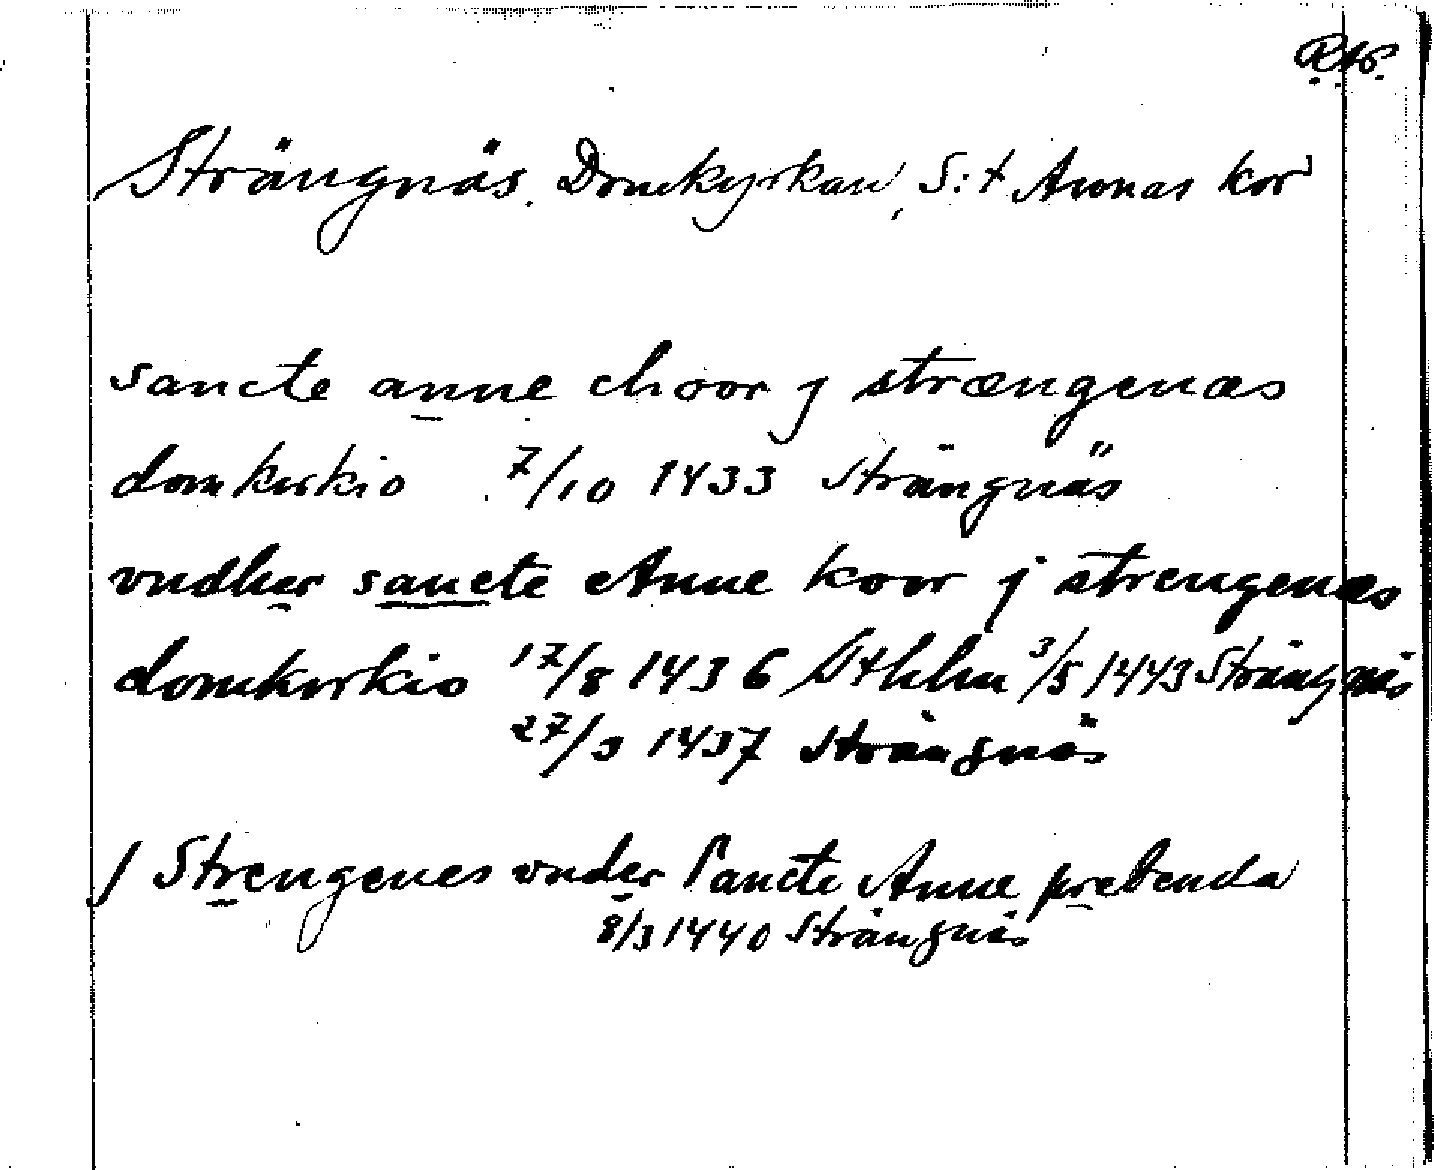 RAp.
Strängnäs. Domkyrkan, S:t Annas kor
sancte anne choor j strængenæs
domkirkio 7/10 1433 Strängnäs
vndher sancte Anne koor j strengenæs
domkirkio 17/8 1436 Sthlm 3/5 1443 Strängnäs
27/3 1437 Strängnäs
J Strengenes vnder Sancte Anne prebenda
8/3 1440 Strängnäs